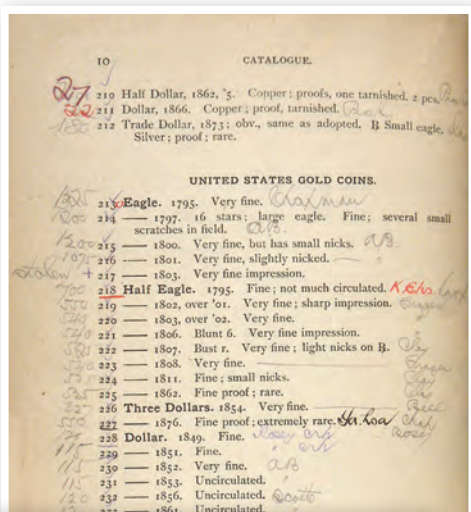 10 CATALOGUE.
27 210 Half Dollar, 1862, '5. Copper; proofs, one tarnished. 2 pcs.
22 211 Dollar, 1866. Copper; proof, tarnished.
212 Trade Dollar, 1873; obv., same as adopted. R Small eagle.
Silver; proof; rare.
UNITED STATES GOLD COINS.
213 Eagle. 1795. Very fine. Chapman
214 —— 1797. 16 stars; large eagle. Fine; several small
scratches in field. AB.
1200 215 —— 1800. Very fine, but has small nicks. AB.
1075 216 —— 1801. Very fine, slightly nicked.
stolen + 217 —— 1803. Very fine impression.
700 218 Half Eagle. 1795. Fine; not much circulated.
550 219 —— 1802, over '01. Very fine; sharp impression.
220 —— 1803, over '02. Very fine.
540 221 —— 1806. Blunt 6. Very fine impression.
222 —— 1807. Bust r. Very fine; light nicks on R.
223 —— 1808. Very fine.
224 —— 1811. Fine; small nicks.
525 225 —— 1862. Fine proof; rare.
226 Three Dollars. 1854. Very fine.
550 227 —— 1876. Fine proof; extremely rare.
228 Dollar. 1849. Fine.
115 229 —— 1851. Fine.
115 230 —— 1852. Very fine. AB
115 231 —— 1853. Uncirculated.
120 232 —— 1856. Uncirculated. Scott
1861. Uncirculated.